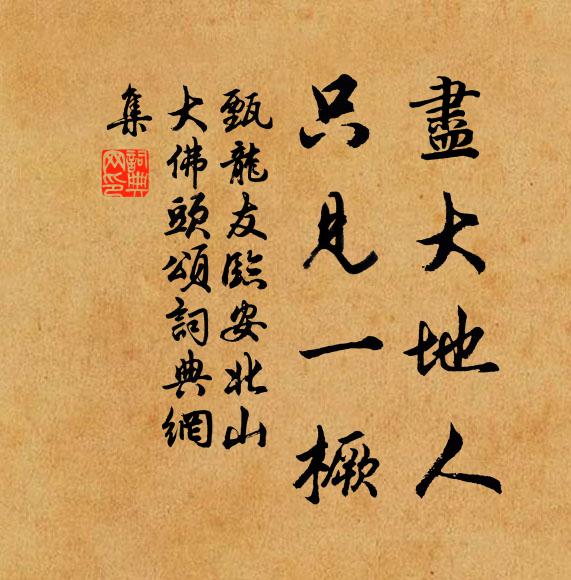 盡大地人
只見一橛
甄龍友臨安北山
大佛頭頌詞典網
集
詞典網印